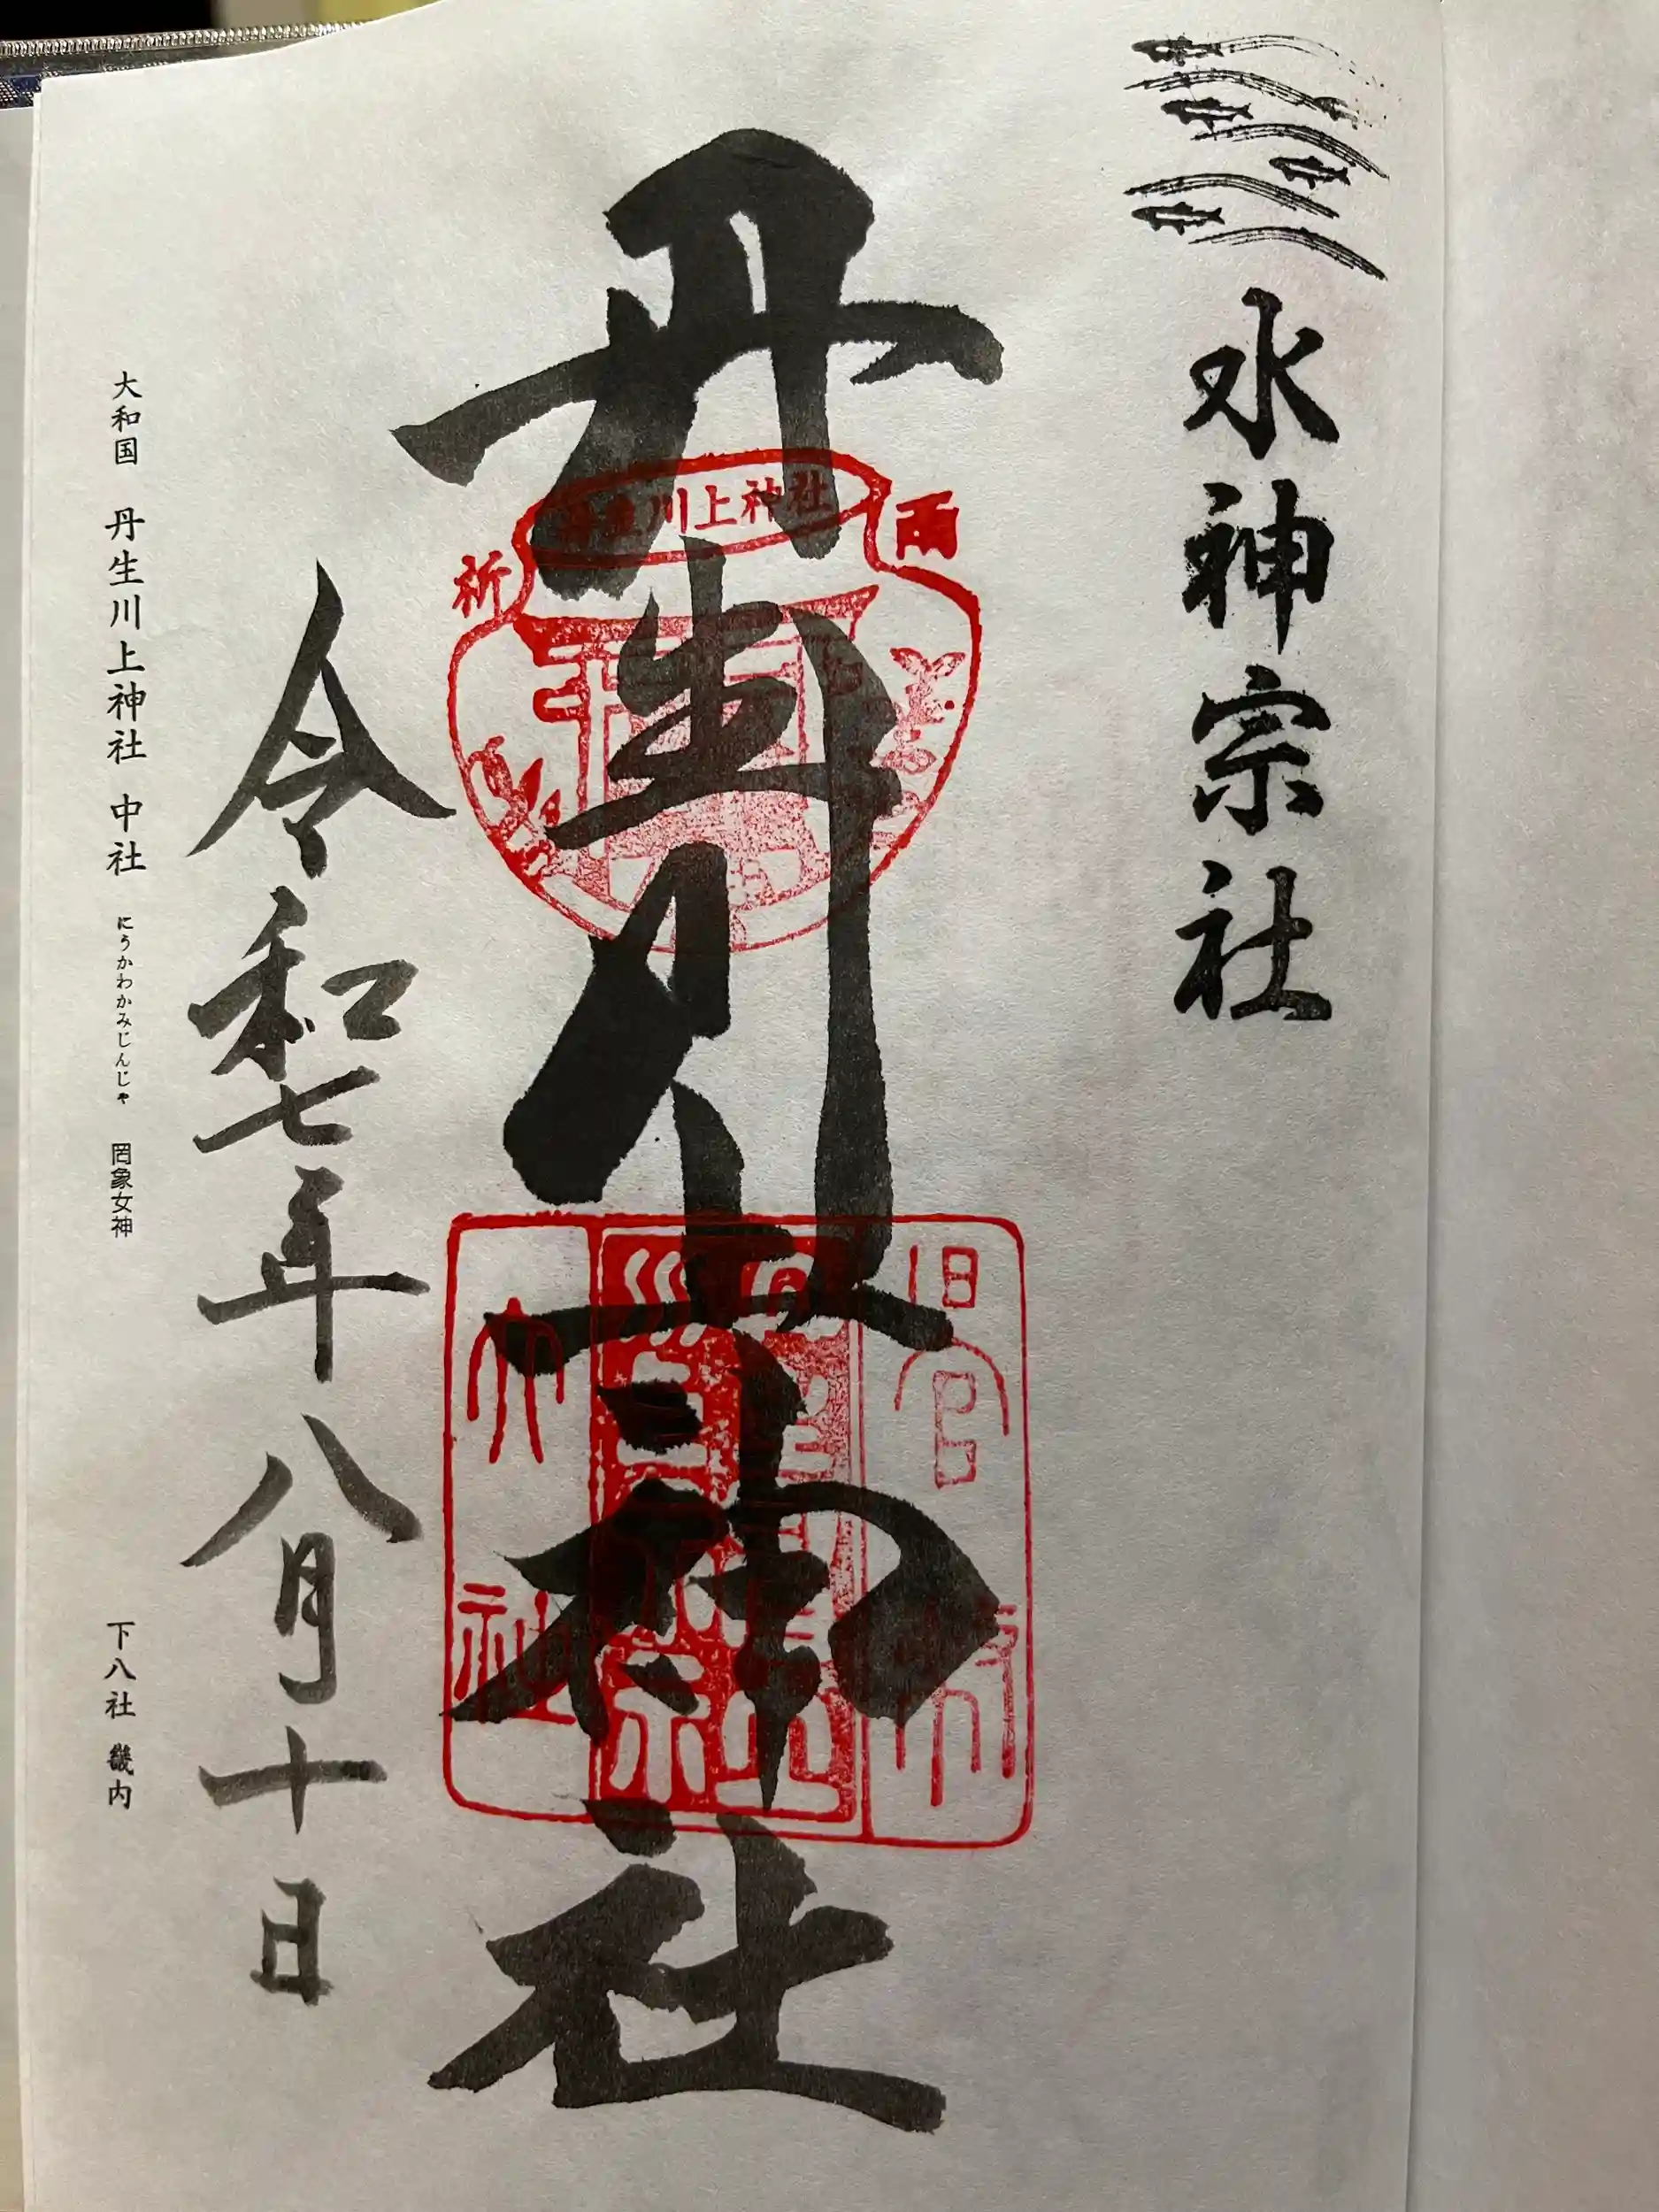 水神宗社
丹生川上神社
川上神社
雨
祈
旧官
大
社
令和七年八月十日
大和国 丹生川上神社 中社 にうかわかみじんじゃ 罔象女神
下八社 畿内